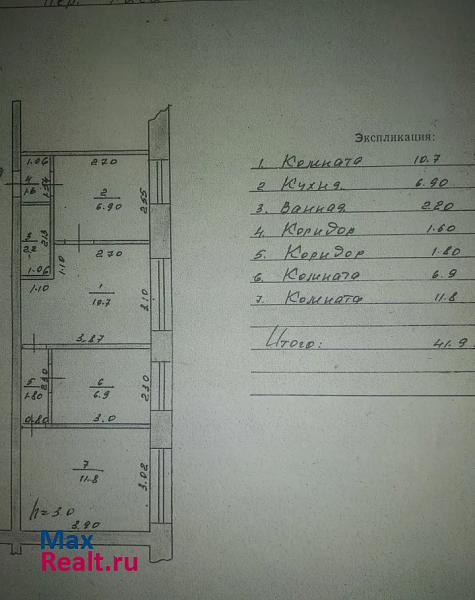 Экспликация:
1. Комната 10.7
2 Кухня 6.90
3. Ванная 2.20
4. Коридор 1.60
5. Коридор 1.80
6. Комната 6.9
7. Комната 11.8
Итого: 41.9
1.06
4
1.6
2.70
2
6.90
2.55
3
2.2
2.13
1.06
1.10
1.10
2.70
1
10.7
3.10
3.87
5
1.80
2.30
0.80
6
6.9
2.30
3.0
7
11.8
3.02
h=3.0
3.90
Max
Realt.ru